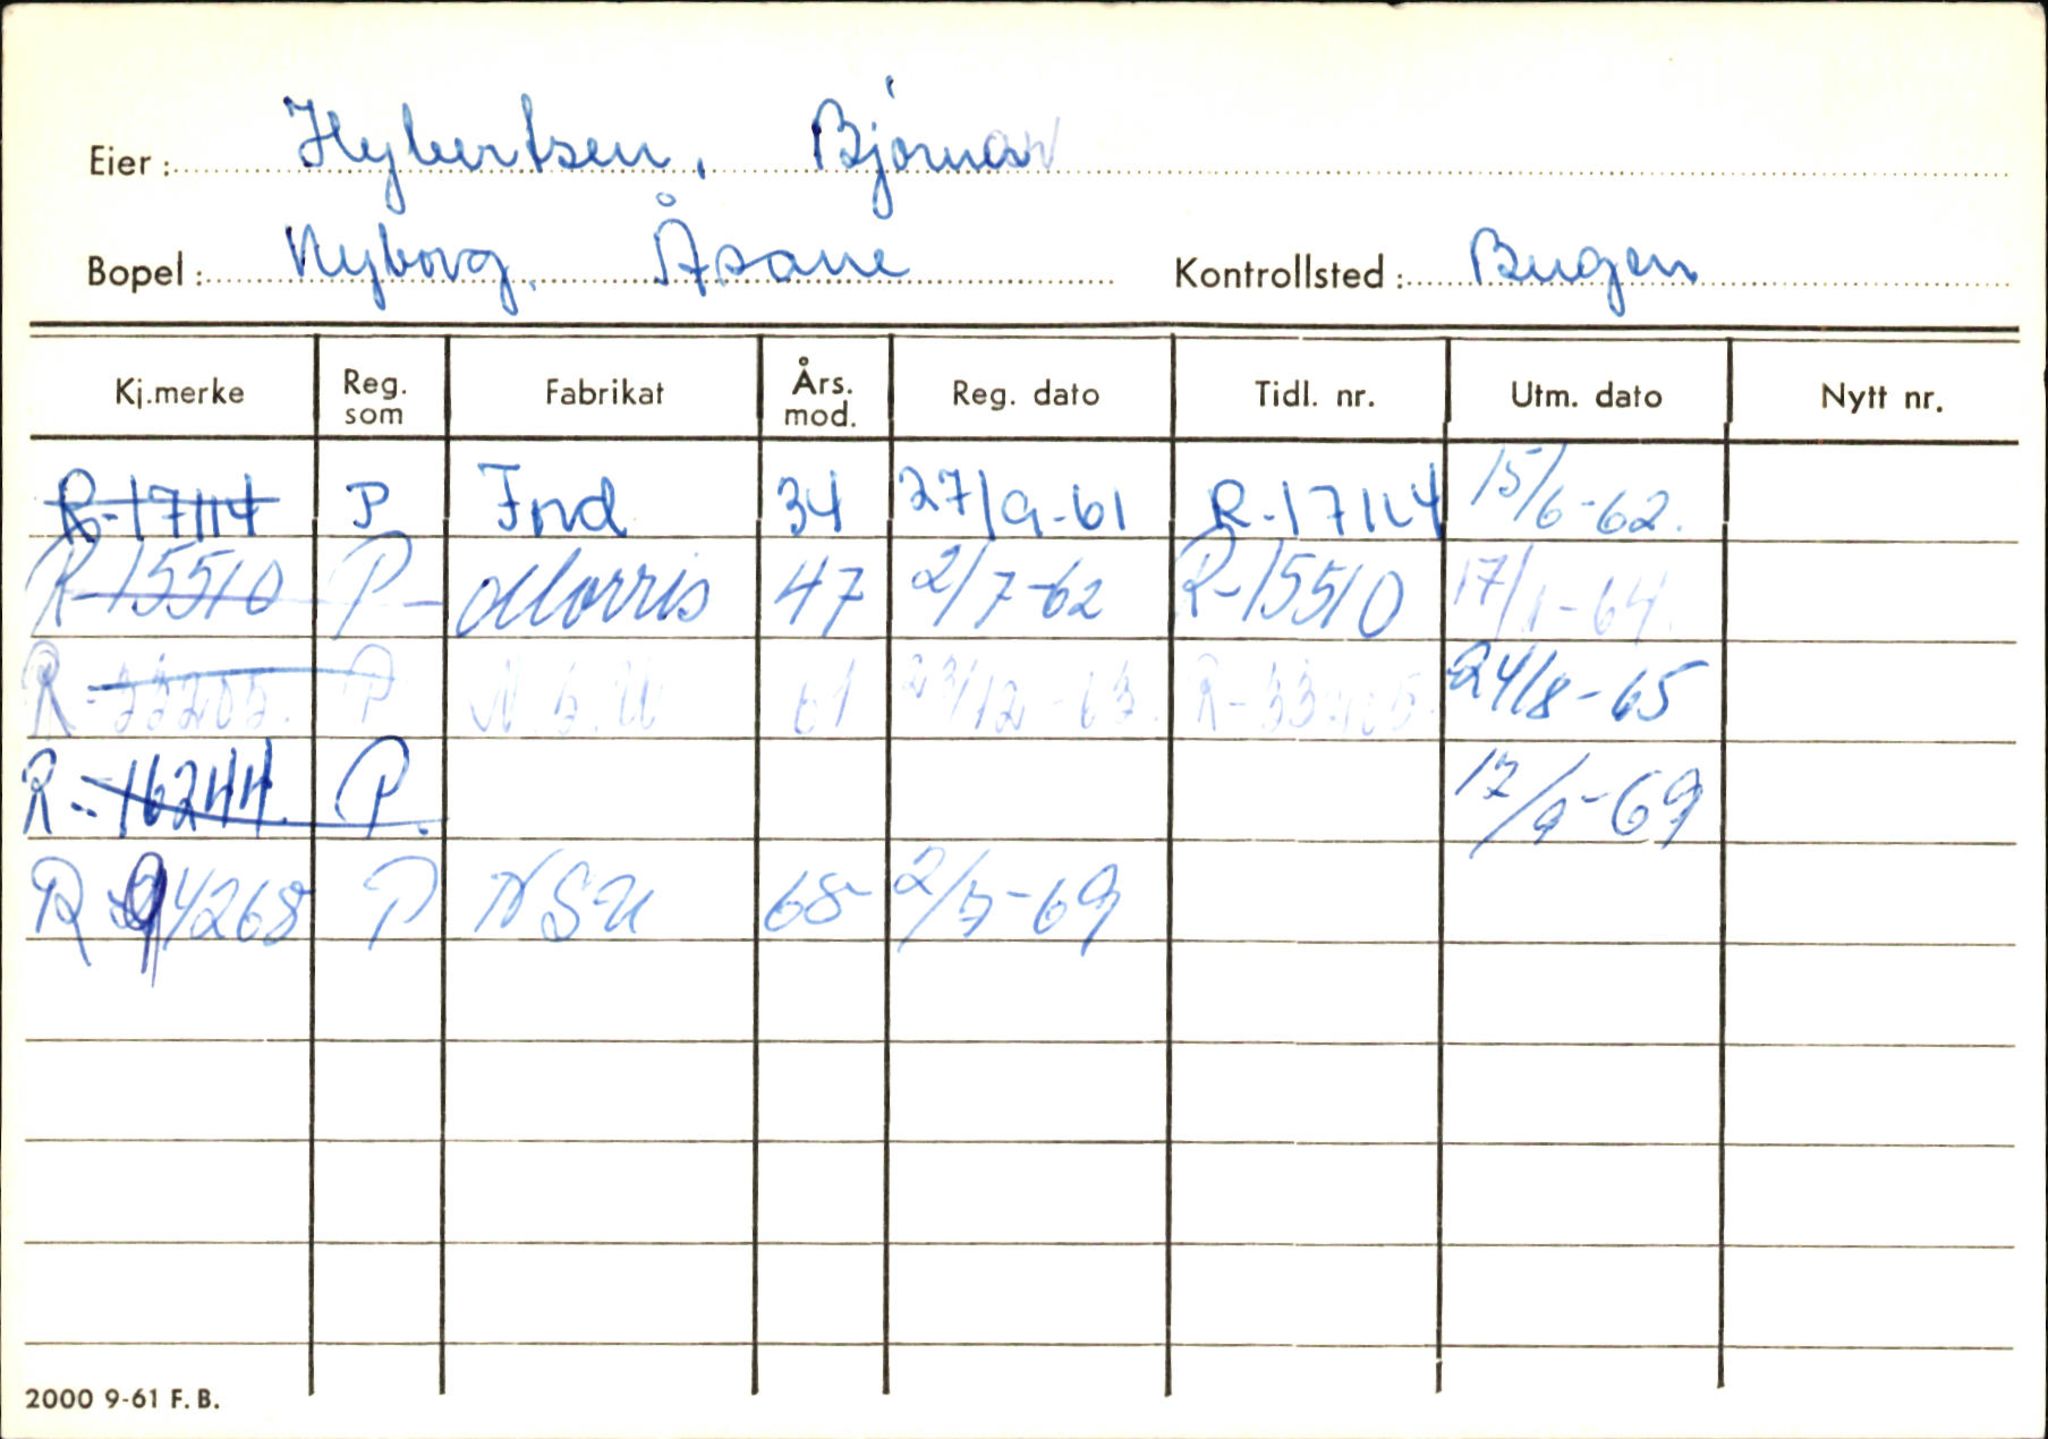 Eier: Hybertsen, Bjørnar
Bopel: Nyborg, Åsane Kontrollsted: Bergen
Kj.merke Reg. som Fabrikat Års. mod. Reg. dato Tidl. nr. Utm. dato Nytt nr.
R-17114 P Ford 34 27/9-61 R-17114 15/6-62.
R-15510 P- Morris 47 2/7-62 R-15510 17/1-64.
P N.S.U 61 23/12-63. 24/8-65
R-16244. P. 17/9-69
R-94268 P NSU 68 2/7-69
2000 9-61 F. B.